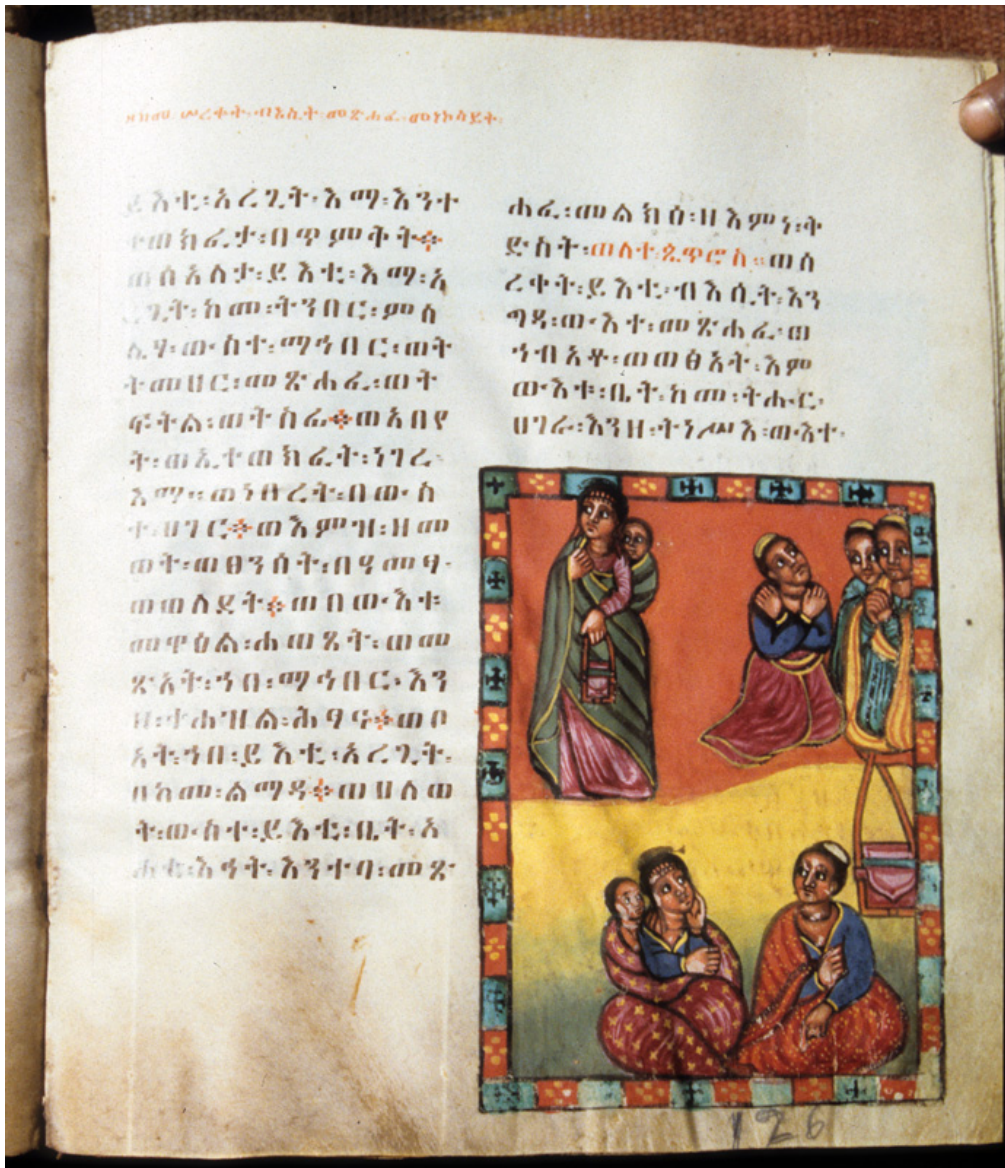 ዘከመ፡ ሠረቀት፡ ብእሲት፡ መጽሐፈ፡ መነኮሳይት፡
ይእቲ፡ አረጊት፡ እማ፡ እንተ
ተወክፈታ፡ በጥምቅት፨
ወሰአለታ፡ ይእቲ፡ እማ፡ አ
ረጊት፡ ከመ፡ ትንበር፡ ምስ
ሌሃ፡ ውስተ፡ ማኅበር፡ ወት
ትመሀር፡ መጽሐፈ፡ ወት
ፍትል፡ ወትስፊ፨ ወአበየ
ት፡ ወኢተወክፈት፡ ነገረ፡
እማ። ወነፀረት፡ በውስ
ተ፡ ሀገር፨ ወእምዝ፡ ዘመ
ወት፡ ወፀንሰት፡ በዓመፃ፡
ወወለደት፨ ወበውእቱ፡
መዋዕል፡ ሐወጸት፡ ወመ
ጽአት፡ ኀበ፡ ማኅበር፡ እን
ዘ፡ ተሐዝል፡ ሕፃና፨ ወቦ
አት፡ ኀበ፡ ይእቲ፡ አረጊት፡
በከመ፡ ልማዳ፨ ወሀለወ
ት፡ ውስተ፡ ይእቲ፡ ቤት፡ አ
ሐቲ፡ እኅት፡ እንተ፡ ባ፡ መጽ
ሐፈ፡ መልክዐ፡ ዘእምነ፡ ቅ
ድስት፡ ወለተ፡ ጴጥሮስ። ወሰ
ረቀት፡ ይእቲ፡ ብእሲት፡ እን
ግዳ፡ ውእተ፡ መጽሐፈ፡ ወ
ኀብአቶ፡ ወወፅአት፡ እም
ውእቱ፡ ቤት፡ ከመ፡ ትሑር፡
ሀገራ፡ እንዘ፡ ትነሥእ፡ ውእተ፡
126